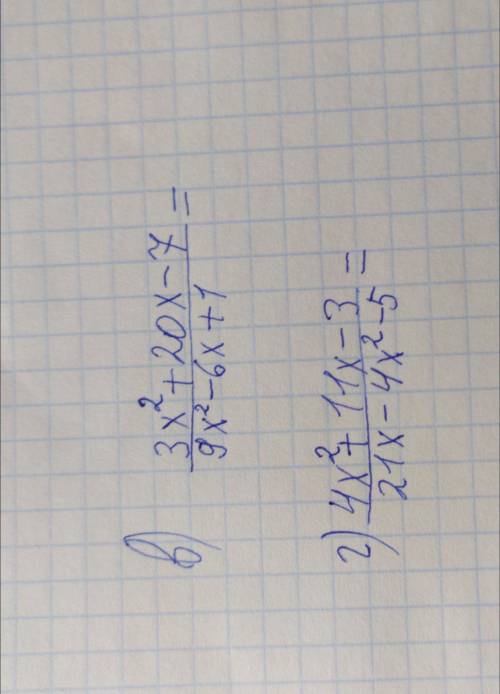 в) 3x²+20x-7 =
9x²-6x+1
г) 4x²+11x-3 =
21x-4x²-5